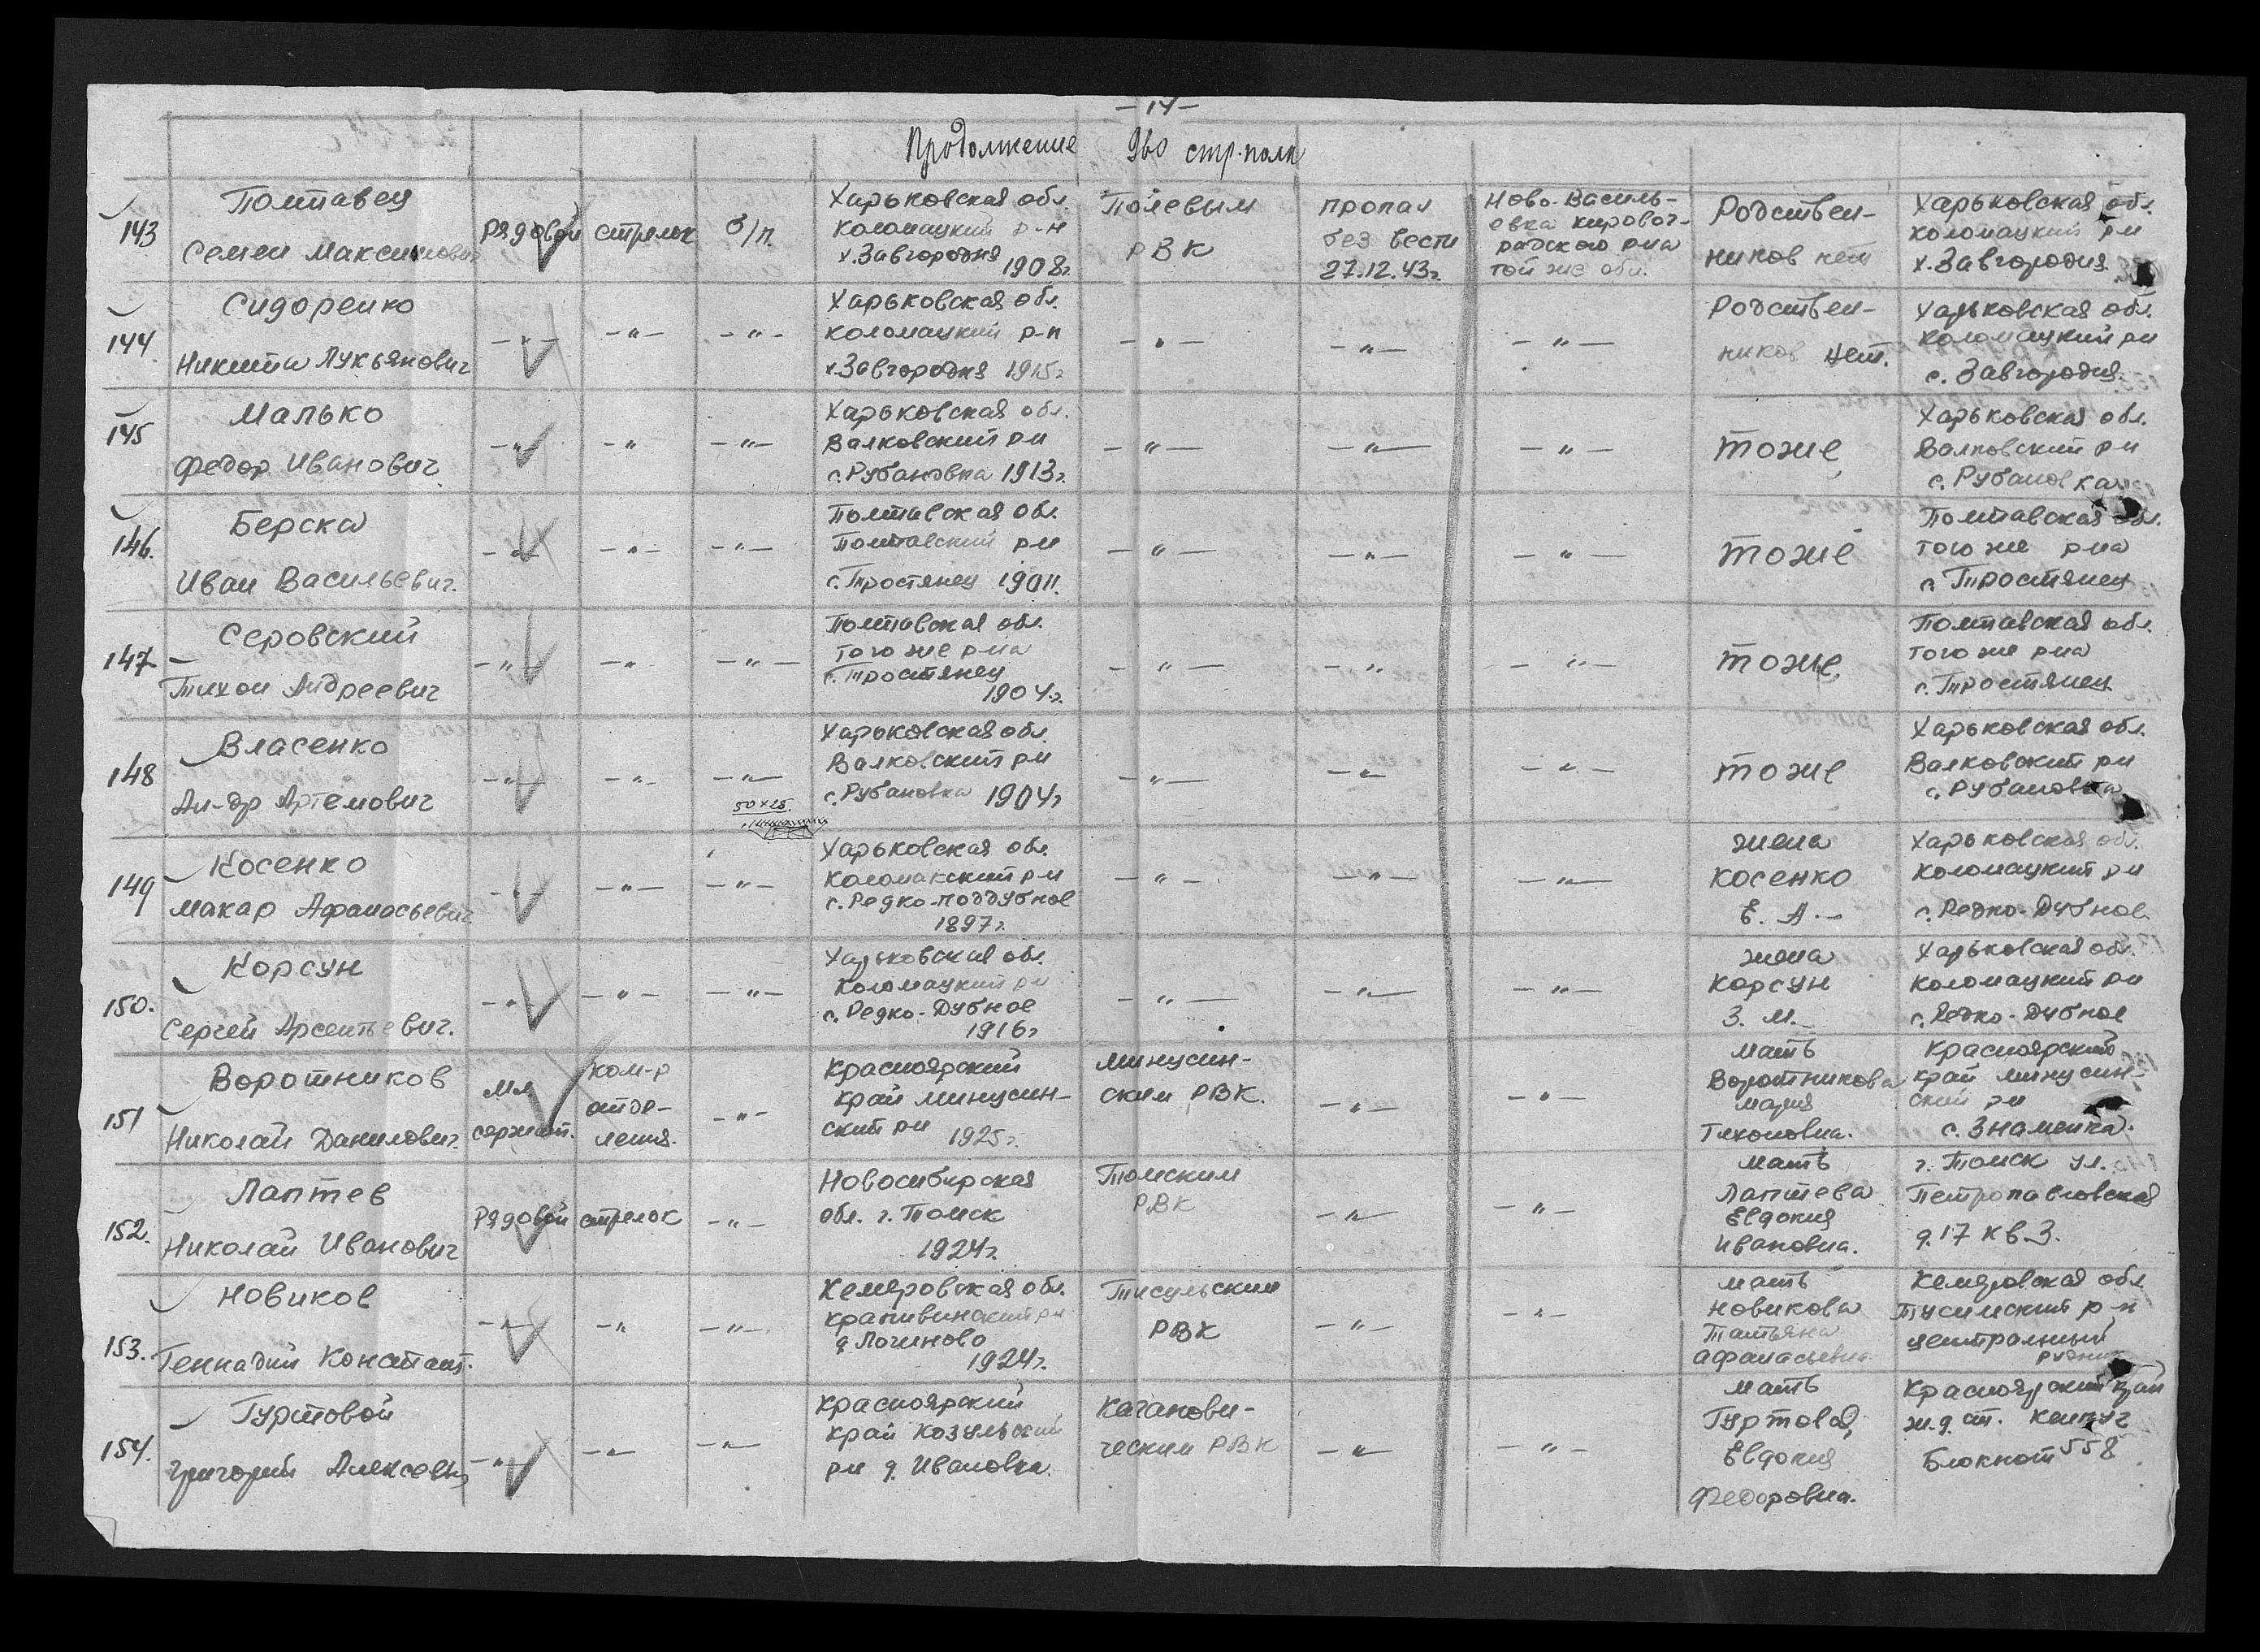 — 14 —
Продолжение 960 стр. полк
143 Полтавец Семен Максимович рядовой стрелок б/п. Харьковская обл. Коломацкий р-н х. Завгородня 1908г. Полевым РВК пропал без вести 27.12.43г. Ново-Василь-евка кировог-радского р-на той же обл. Родствен-ников нет Харьковская обл. Коломацкий рн х. Завгородня.
144. Сидоренко Никита Лукьянович —"— —"— —"— Харьковская обл. Коломацкий р-н х. Завгородня 1915г —"— —"— —"— Родствен-ников нет. Харьковская обл. Коломацкий рн с. Завгородня.
145 Малько Федор Иванович —"— —" —"— Харьковская обл. Валковский рн с. Рубановка 1913г. —"— —"— —"— тоже Харьковская обл. Валковский рн с. Рубановка
146. Берска Иван Васильевич. —"— —"— —"— Полтавская обл. Полтавский рн с. Тростянец 1901г. —"— —"— —"— тоже Полтавская обл. того же р-на с. Тростянец
147 Серовский Тихон Андреевич —"— —"— —"— Полтавская обл. того же р-на с. Тростянец 1904г. —"— —"— —"— тоже Полтавская обл. того же р-на с. Тростянец
148 Власенко Ан-др Артемович —"— —"— —"— 50×25. Харьковская обл. Валковский рн с. Рубановка 1904г —"— —"— —"— тоже Харьковская обл. Валковский рн с. Рубановка
149 Косенко Макар Афанасьевич —"— —"— —"— Харьковская обл. Коломакский рн с. Редко-поддубное 1897г. —"— —"— —"— жена Косенко Е. А. — Харьковская обл. Коломацкий рн с. Редко-Дубное
150. Корсун Сергей Арсентьевич. —"— —"— —"— Харьковская обл. Коломацкий рн с. Редко-Дубное 1916г —"— —"— —"— жена Корсун З. М. Харьковская обл. Коломацкий рн с. Редко-Дубное
151 Воротников Николай Данилович. мл сержант. ком-р отде-ления. —"— Красноярский край минусин-ский рн 1925г. минусин-ским РВК. —"— —"— мать Воротникова мария Тихоновна. Красноярский край минусин-ский рн с. Знаменка.
152. Лаптев Николай Иванович рядовой стрелок —"— Новосибирская обл. г. Томск 1924г. Томским РВК —"— —"— мать Лаптева Евдокия Ивановна. г. Томск ул. Петропавловская д. 17 кв. 3.
153. Новиков Геннадий Констант. —"— —"— —"— Кемеровская обл. крапивинский рн д Логиново 1924г. Тисульским РВК —"— —"— мать Новикова Татьяна Афанасьевна Кемеровская обл Тусимский р-н центролный рудник
154. Гуртовой Григорий Алексеевич —"— —"— —"— Красноярский край Козульский рн д. Ивановка. Каганови-ческим РВК —"— —"— мать Гуртовая, Евдокия Федоровна. Красноярский край ж. д. ст. Блокпост 558